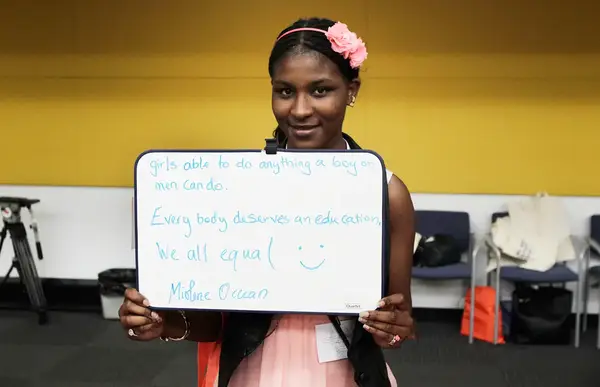 girls able to do anything a boy or
men can do.
Every body deserves an education,
We all equal
Quartet